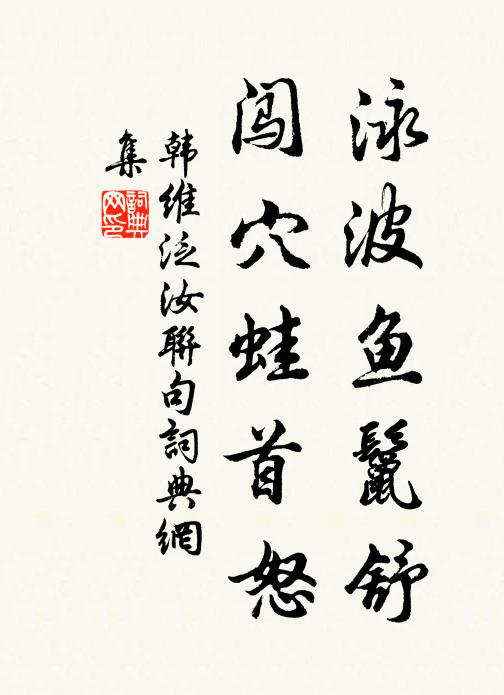 泳波鱼鬣舒
闯穴蛙首怒
韩维泛汝聯句詞典網
集
詞典
网印